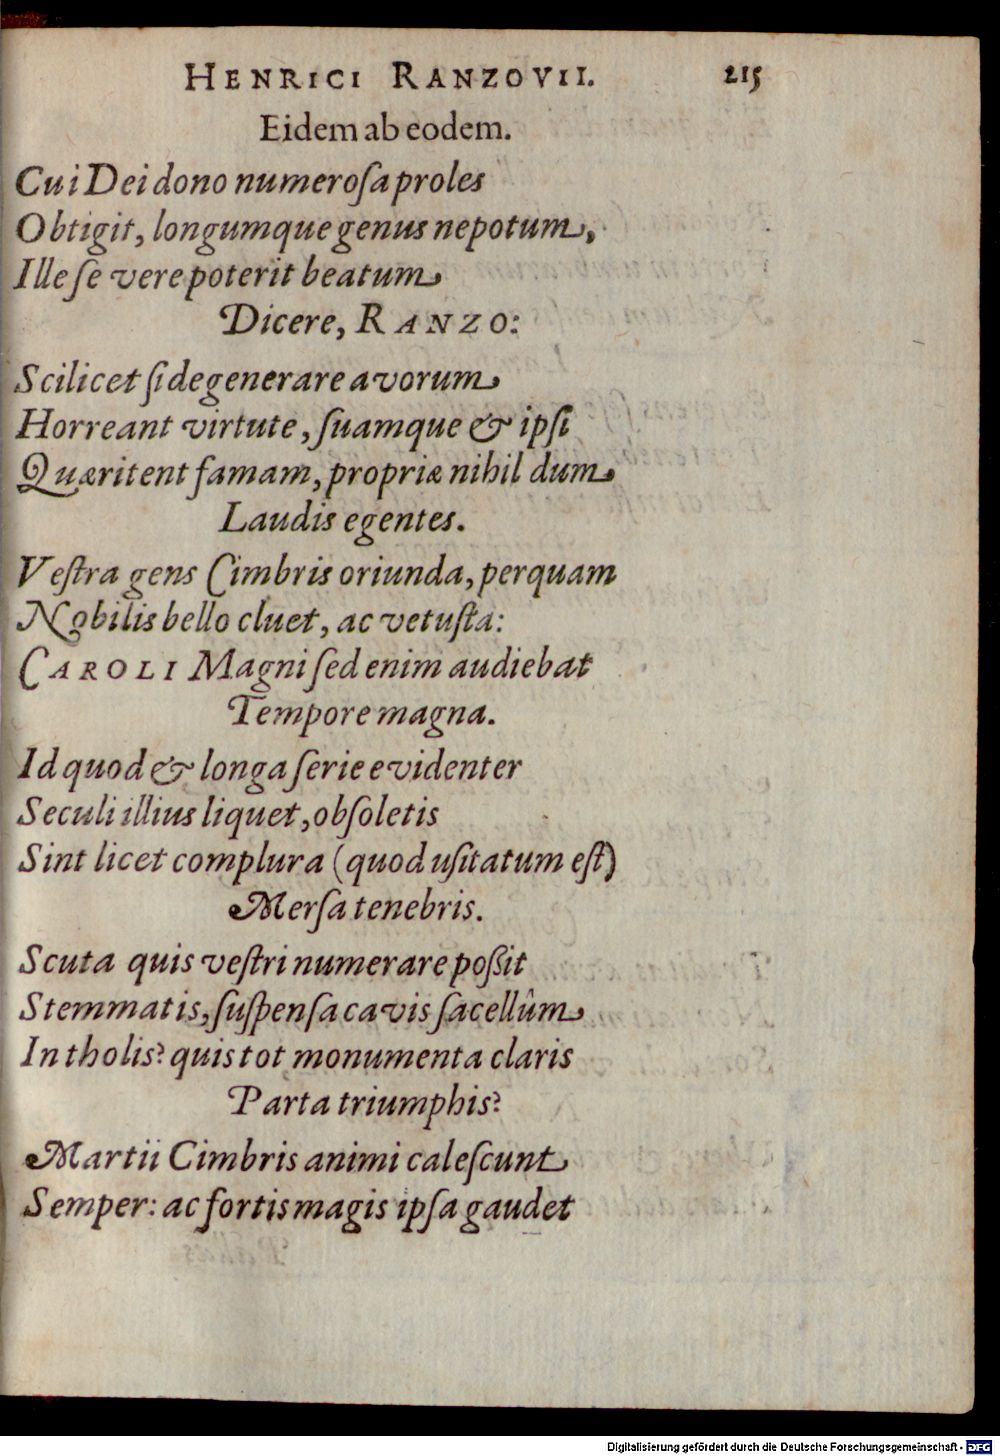 HENRICI RANZOVII. 215
Eidem ab eodem.
Cui Dei dono numeroſa proles
Obtigit, longumque genus nepotum,
Ille ſe vere poterit beatum
Dicere, RANZO:
Scilicet ſi degenerare avorum
Horreant virtute, ſuamque & ipſi
Quæritent famam, propriæ nihil dum
Laudis egentes.
Veſtra gens Cimbris oriunda, perquam
Nobilis bello cluet, ac vetuſta:
CAROLI Magni ſed enim audiebat
Tempore magna.
Id quod & longa ſerie evidenter
Seculi illius liquet, obſoletis
Sint licet complura (quod uſitatum eſt)
Merſa tenebris.
Scuta quis veſtri numerare poßit
Stemmatis, ſuſpenſa cavis ſacellûm
In tholis? quis tot monumenta claris
Parta triumphis?
Martii Cimbris animi caleſcunt
Semper: ac fortis magis ipſa gaudet
Digitalisierung gefördert durch die Deutsche Forschungsgemeinschaft - DFG